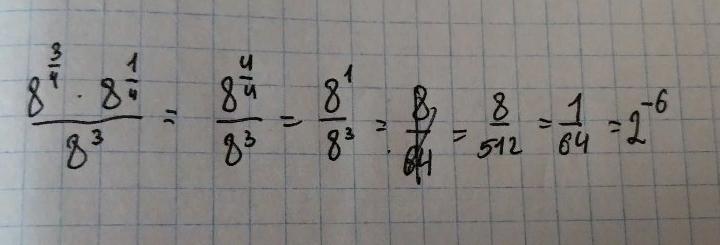 8^{3/4} · 8^{1/4} / 8^3 = 8^{4/4} / 8^3 = 8^1 / 8^3 = 8/64 = 8/512 = 1/64 = 2^{-6}